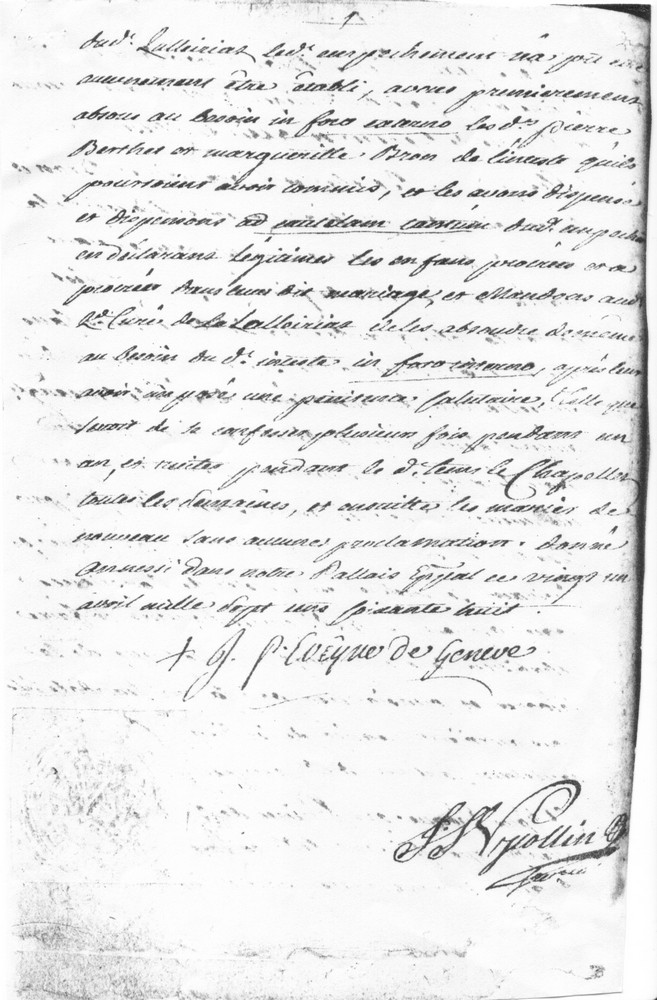 dud.t Lalloiriaz led.t empechement n'a pû
aucunement être établi, avons premierement
absous au besoin in foro externo les d.ts pierre
Berthet et margueritte Bron de l'inceste qu'ils
pourroient avoir commis, et les avons dispensé
et dispensons ad cautelam tantum dud.t
en déclarant légitimes les enfans procréés et à
procréer dans leur dit mariage, et Mandons aud.
R.d Curé de la Lalloiriaz de les absoudre de même
au besoin du d.t inceste in foro interno, après leur
avoir imposé une penitence salutaire, telle que
seroit de se confesser plusieurs fois pendant un
an, et reciter pendant le d.t tems le Chapellet
toutes les semaines, et ensuitte les marier de
nouveau sans aucune proclamation. Donné
Annessi dans notre Pallais Epi͞pal ce vingt un
avril mille sept cens soixante huit.
+ J. P. Evêque de Geneve